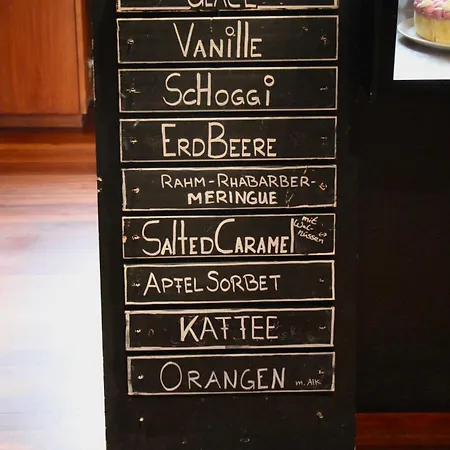 GLACE
VANILLE
SCHOGGi
ERDBEERE
RAHM-RHABARBER-
MERINGUE
SALTED CARAMEL mit Walnüssen
APFEL SORBET
KAFFEE
ORANGEN m. Alk